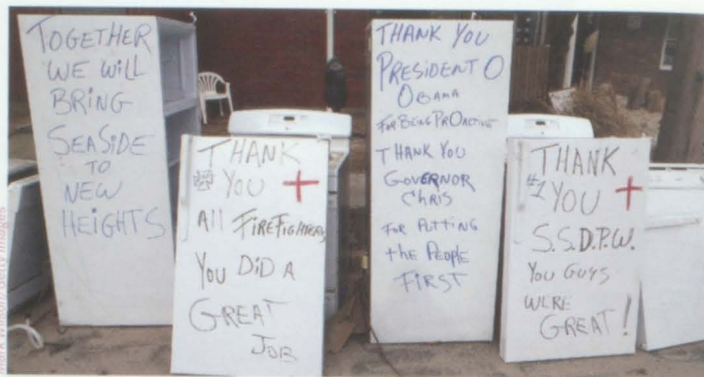 TOGETHER
WE WILL
BRING
SEASIDE
TO
NEW
HEIGHTS
THANK
YOU +
All FIREFIGHTERS
You DiD A
GREAT
JOB
THANK YOU
PRESIDENT O
OBAMA
FOR BEING PROACTIVE
THANK YOU
GOVERNOR
CHRIS
FOR PUTTING
the PEOPLE
FIRST
THANK
#1 YOU +
S.S.D.P.W.
YOU GUYS
WERE
GREAT!
Mark Wilson/Getty Images